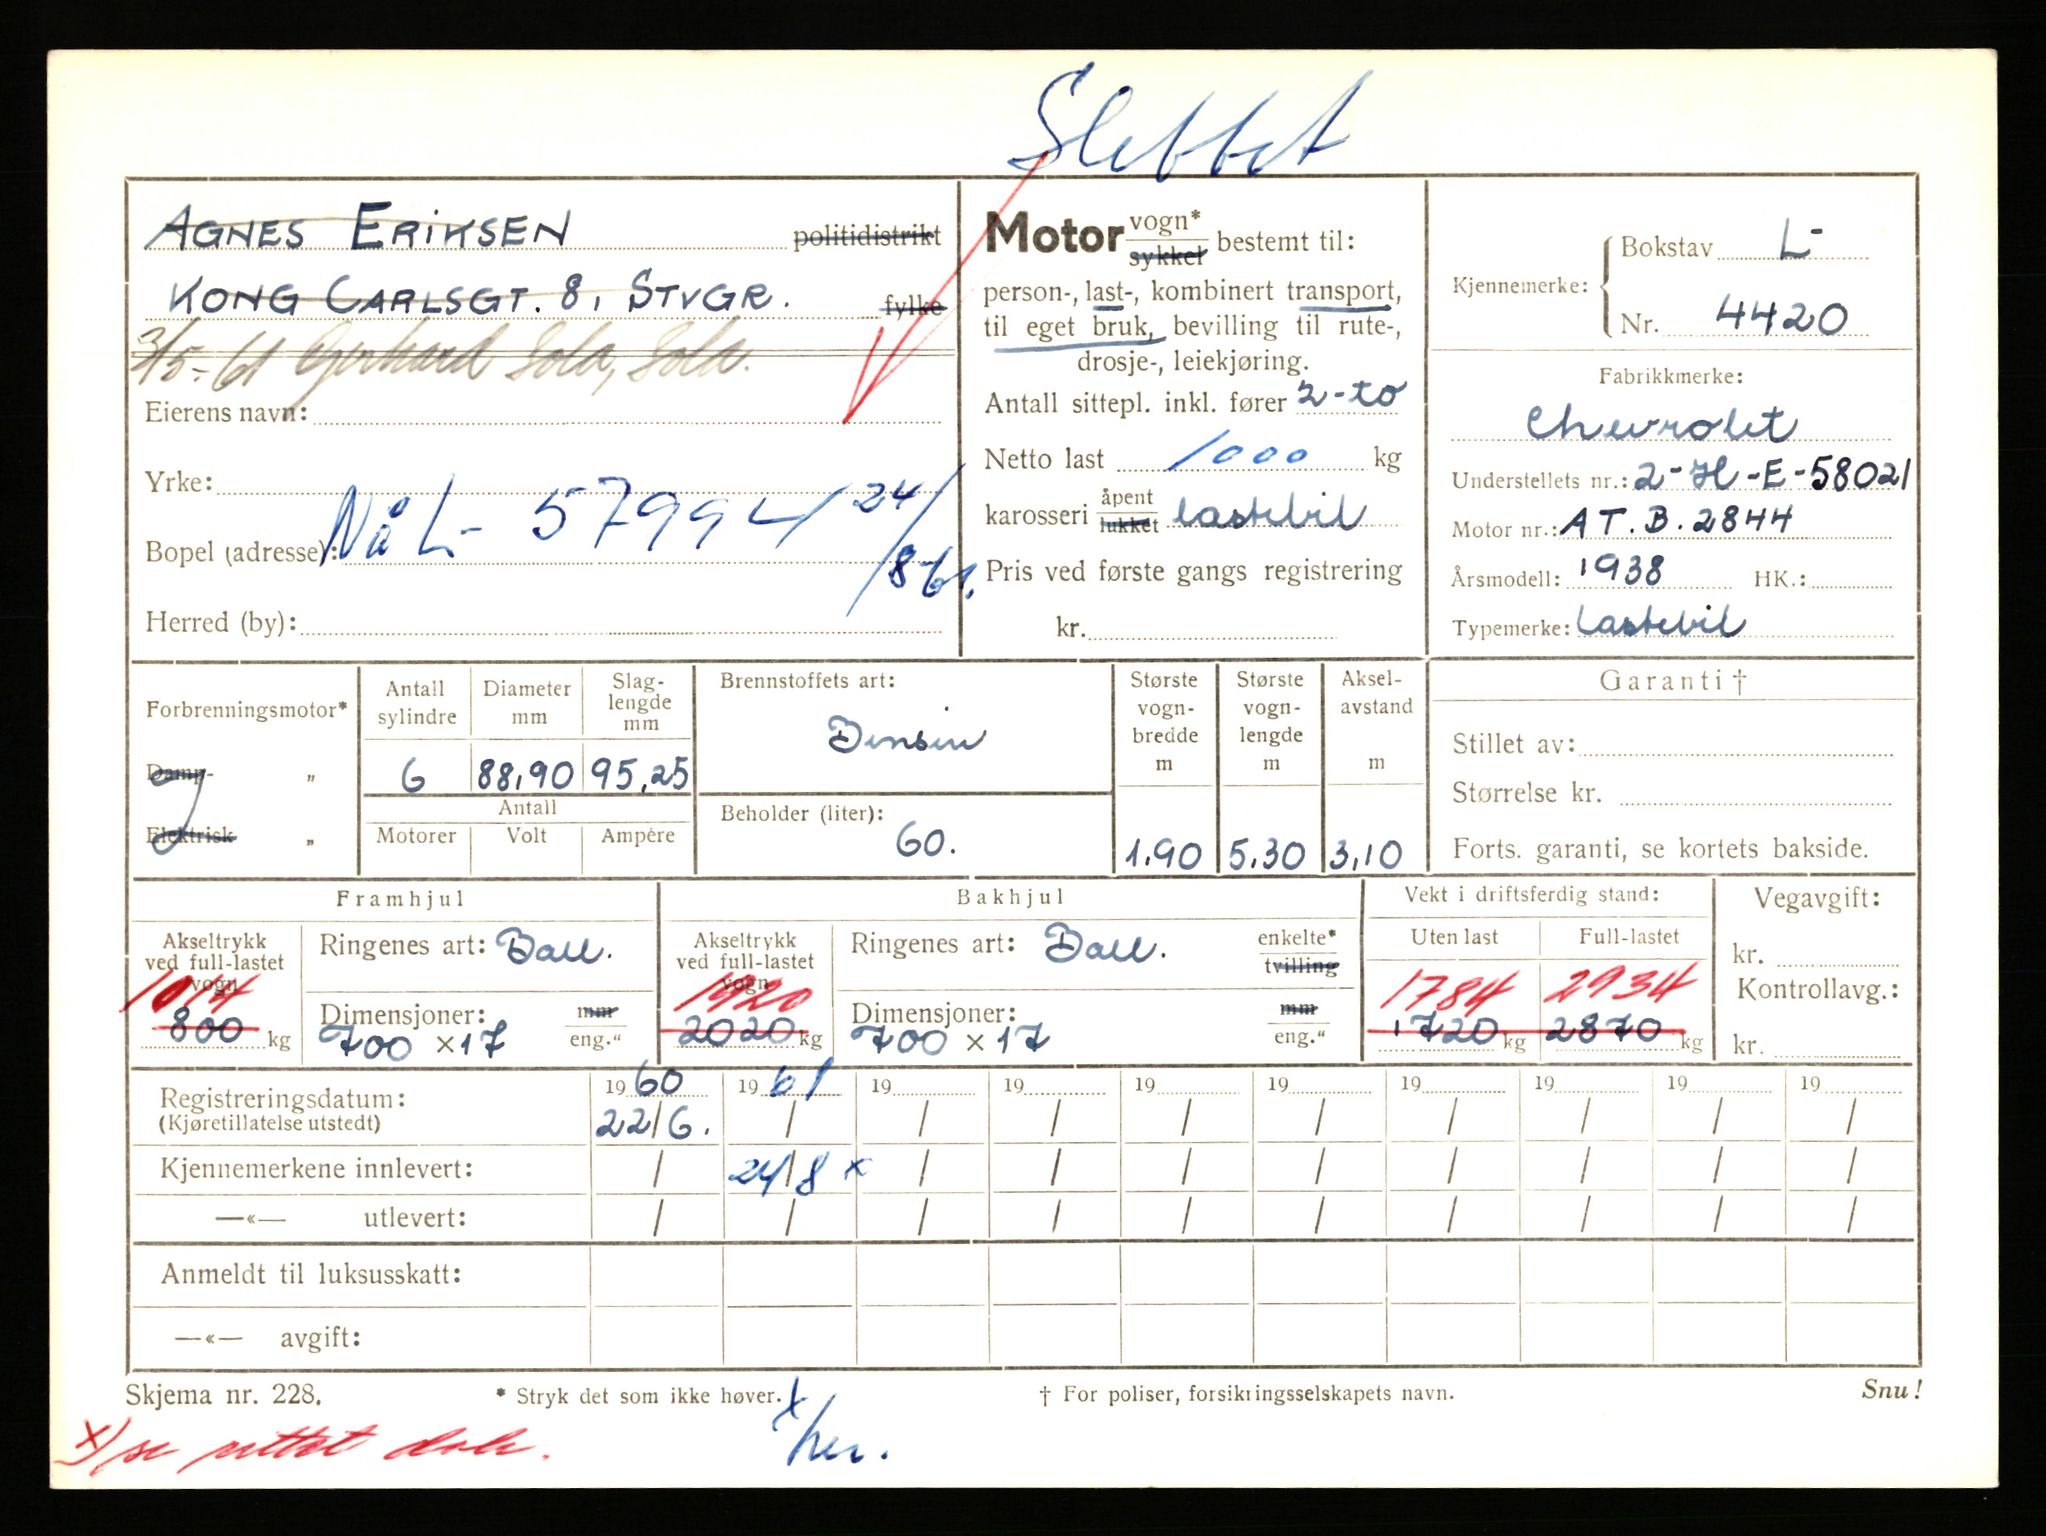 Slettet
AGNES ERIKSEN politidistrikt
KONG CARLSGT. 8, STVGR. fylke
3/5-61 Gerhard Sola, Sola.
Eierens navn:
Yrke:
Nå L- 57994 24/8-61.
Bopel (adresse):
Herred (by):
Motor vogn* sykkel bestemt til:
person-, last-, kombinert transport,
til eget bruk, bevilling til rute-,
drosje-, leiekjøring.
Antall sittepl. inkl. fører 2-to
Netto last 1000 kg
karosseri åpent lukket lastebil
Pris ved første gangs registrering
kr.
Kjennemerke: Bokstav L-
Nr. 4420
Fabrikkmerke:
Chevrolet
Understellets nr.: 2-H-E-58021
Motor nr.: AT.B.2844
Årsmodell: 1938 HK.:
Typemerke: Lastebil
Forbrenningsmotor*
Damp- „
Elektrisk „
Antall sylindre
6
Diameter mm
88,90
Slag-lengde mm
95,25
Antall
Motorer Volt Ampére
Brennstoffets art:
Bensin
Beholder (liter):
60.
Største vogn-bredde m
1.90
Største vogn-lengde m
5.30
Aksel-avstand m
3,10
Garanti †
Stillet av:
Størrelse kr.
Forts. garanti, se kortets bakside.
Framhjul
Akseltrykk ved full-lastet vogn
1014
800 kg
Ringenes art: Ball.
Dimensjoner: mm
700 x 17 eng."
Bakhjul
Akseltrykk ved full-lastet vogn
1920
2020 kg
Ringenes art: Ball. enkelte* tvilling
Dimensjoner: mm
700 x 17 eng."
Vekt i driftsferdig stand:
Uten last Full-lastet
1784 2934
1720 kg 2870 kg
Vegavgift:
kr.
Kontrollavg.:
kr.
Registreringsdatum: 19 60 19 61 19 19 19 19 19 19 19 19
(Kjøretillatelse utstedt) 22/6. / / / / / / / / /
Kjennemerkene innlevert: / 24/8 x / / / / / / / /
—«— utlevert: / / / / / / / / / /
Anmeldt til luksusskatt:
—«— avgift:
Skjema nr. 228. * Stryk det som ikke høver. † For poliser, forsikringsselskapets navn. Snu!
x) se rettet
x/her.